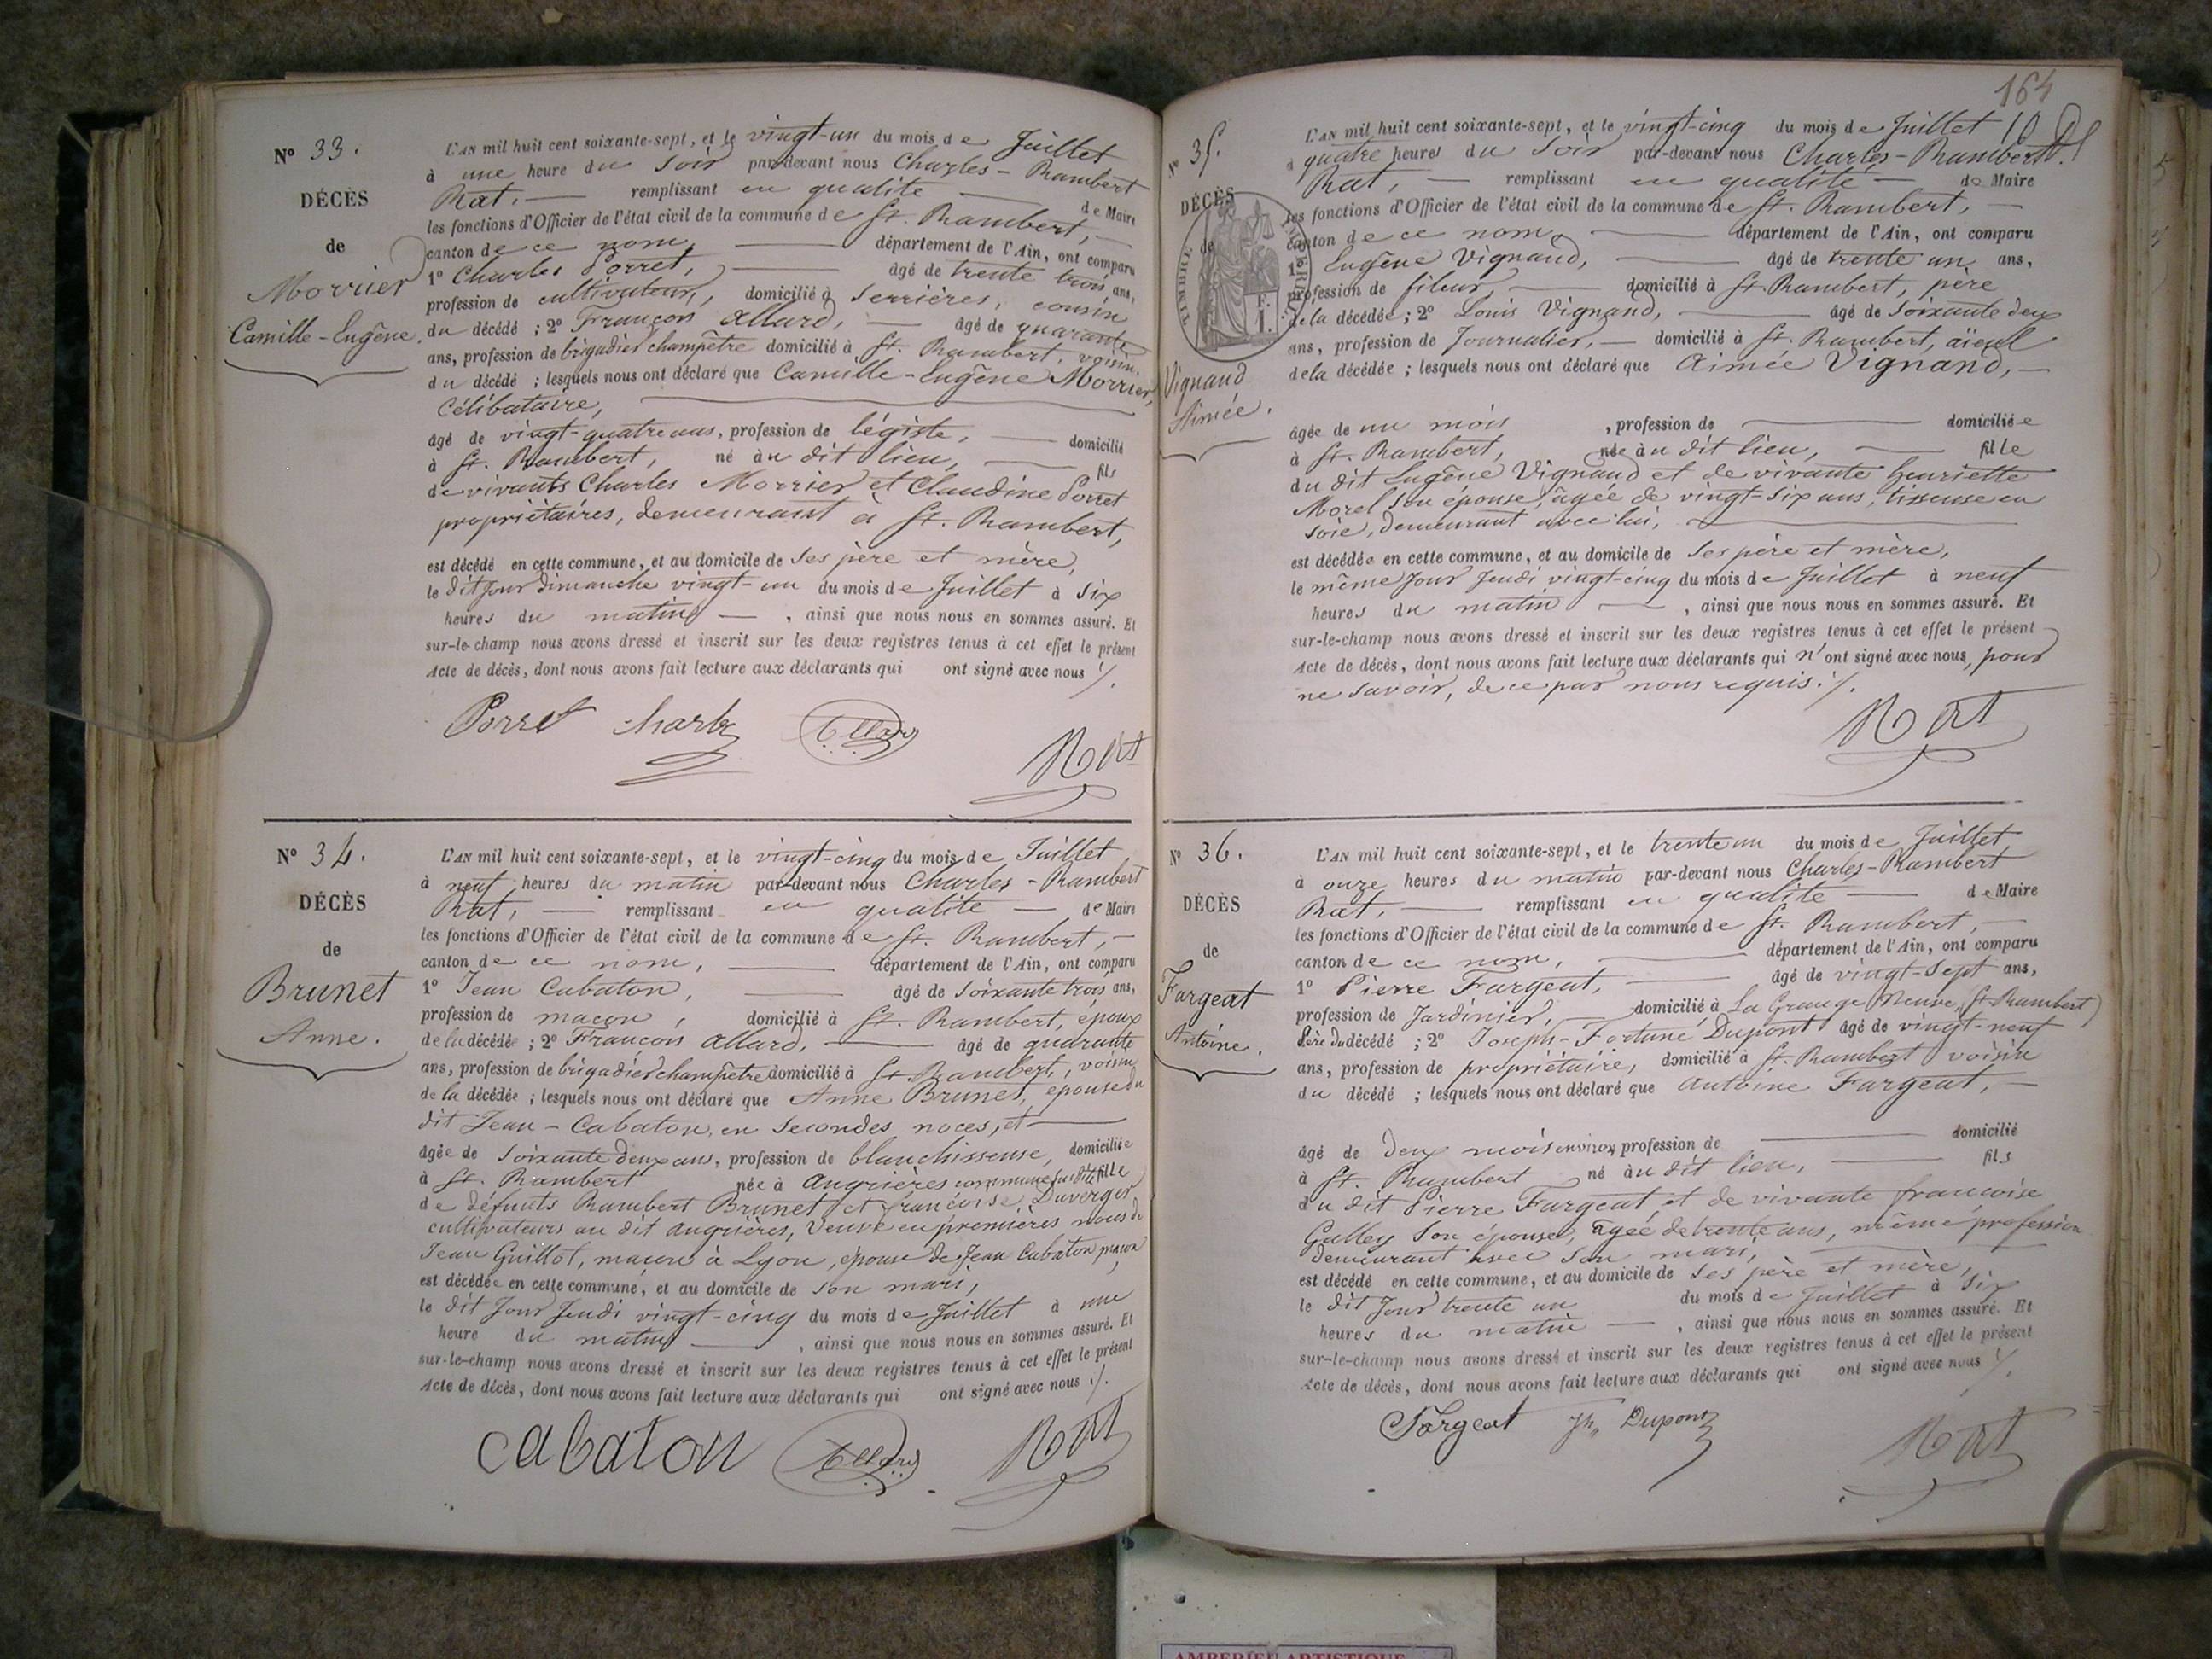 N° 33.
DÉCÈS
de
Morrier
Camille-Eugène.
L'AN mil huit cent soixante-sept, et le vingt-un du mois de Juillet
à une heure du Soir par-devant nous Charles-Rambert
Rat, remplissant en qualité de Maire
les fonctions d'Officier de l'état civil de la commune de St. Rambert,
canton de ce nom, département de l'Ain, ont comparu
1° Charles Porret, âgé de trente trois ans,
profession de cultivateur, domicilié à Serrières, cousin
du décédé ; 2° François Allard, âgé de quarante
ans, profession de brigadier champêtre domicilié à St. Rambert, voisin,
du décédé ; lesquels nous ont déclaré que Camille-Eugène Morrier,
Célibataire,
âgé de vingt-quatre ans, profession de légiste, domicilié
à St. Rambert, né au dit lieu, fils
de vivants Charles Morrier et Claudine Porret
propriétaires, demeurant à St. Rambert,
est décédé en cette commune, et au domicile de Ses père et mère,
le dit jour dimanche vingt-un du mois de Juillet à Six
heures du matin, ainsi que nous nous en sommes assuré. Et
sur-le-champ nous avons dressé et inscrit sur les deux registres tenus à cet effet le présent
Acte de décès, dont nous avons fait lecture aux déclarants qui ont signé avec nous ./.
Porret Charles Allard
Rat
N° 34.
DÉCÈS
de
Brunet
Anne.
L'AN mil huit cent soixante-sept, et le vingt-cinq du mois de Juillet
à neuf heures du matin par-devant nous Charles-Rambert
Rat, remplissant en qualité de Maire
les fonctions d'Officier de l'état civil de la commune de St. Rambert,
canton de ce nom, département de l'Ain, ont comparu
1° Jean Cabaton, âgé de Soixante trois ans,
profession de maçon, domicilié à St. Rambert, époux
de la décédée ; 2° François Allard, âgé de quarante
ans, profession de brigadier champêtre domicilié à St. Rambert, voisin
de la décédée ; lesquels nous ont déclaré que Anne Brunet, épouse du
dit Jean-Cabaton, en Secondes noces, et
âgée de Soixante deux ans, profession de blanchisseuse, domiciliée
à St. Rambert née à Angrières commune fille
de défunts Rambert Brunet et françoise Duverger
cultivateurs au dit Angrières, Veuve en premières noces de
Jean Guillot, maçon à Lyon, épouse de Jean Cabaton maçon,
est décédée en cette commune, et au domicile de Son mari,
le dit Jour Jeudi vingt-cinq du mois de Juillet à une
heure du matin, ainsi que nous nous en sommes assuré. Et
sur-le-champ nous avons dressé et inscrit sur les deux registres tenus à cet effet le présent
Acte de décès, dont nous avons fait lecture aux déclarants qui ont signé avec nous ./.
cabaton Allard Rat
164
N° 35.
DÉCÈS
de
TIMBRE IMPÉRIAL
Vignand
Aimée.
L'AN mil huit cent soixante-sept, et le vingt-cinq du mois de Juillet
à quatre heures du Soir par-devant nous Charles-Rambert
Rat, remplissant en qualité de Maire
les fonctions d'Officier de l'état civil de la commune de St. Rambert,
canton de ce nom, département de l'Ain, ont comparu
1° Eugène Vignand, âgé de trente un ans,
profession de fileur, domicilié à St. Rambert, père
de la décédée ; 2° Louis Vignand, âgé de Soixante deux
ans, profession de Journalier, domicilié à St. Rambert, aïeul
de la décédée ; lesquels nous ont déclaré que Aimée Vignand,
âgée de un mois, profession de domiciliée
à St. Rambert, née au dit lieu, fille
du dit Eugène Vignand et de vivante henriette
Morel Son épouse, âgée de vingt-six ans, tisseuse en
soie, demeurant avec lui,
est décédée en cette commune, et au domicile de Ses père et mère,
le même Jour Jeudi vingt-cinq du mois de Juillet à neuf
heures du matin, ainsi que nous nous en sommes assuré. Et
sur-le-champ nous avons dressé et inscrit sur les deux registres tenus à cet effet le présent
Acte de décès, dont nous avons fait lecture aux déclarants qui n'ont signé avec nous, pour
ne savoir, de ce par nous requis ./.
Rat
N° 36.
DÉCÈS
de
Fargeat
Antoine.
L'AN mil huit cent soixante-sept, et le trente un du mois de Juillet
à onze heures du matin par-devant nous Charles-Rambert
Rat, remplissant en qualité de Maire
les fonctions d'Officier de l'état civil de la commune de St. Rambert,
canton de ce nom, département de l'Ain, ont comparu
1° Pierre Fargeat, âgé de vingt-sept ans,
profession de Jardinier, domicilié à La Grange Neuve, (St Rambert)
Père du décédé ; 2° Joseph-Fortuné Dupont âgé de vingt-neuf
ans, profession de propriétaire, domicilié à St. Rambert voisin
du décédé ; lesquels nous ont déclaré que Antoine Fargeat,
âgé de deux mois environ profession de domicilié
à St. Rambert né au dit lieu, fils
du dit Pierre Fargeat, et de vivante françoise
Galley Son épouse, âgée de trente ans, même profession
demeurant avec Son mari,
est décédé en cette commune, et au domicile de Ses père et mère,
le dit Jour trente un du mois de Juillet à Six
heures du matin, ainsi que nous nous en sommes assuré. Et
sur-le-champ nous avons dressé et inscrit sur les deux registres tenus à cet effet le présent
Acte de décès, dont nous avons fait lecture aux déclarants qui ont signé avec nous ./.
Fargeat Jh. Dupont
Rat
AMBERIEU ARTISTIQUE